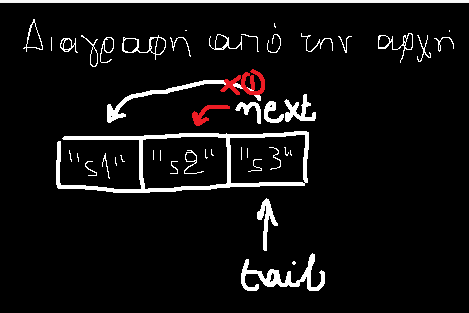 Διαγραφή από την αρχή
①
next
"s1" "s2" "s3"
tail